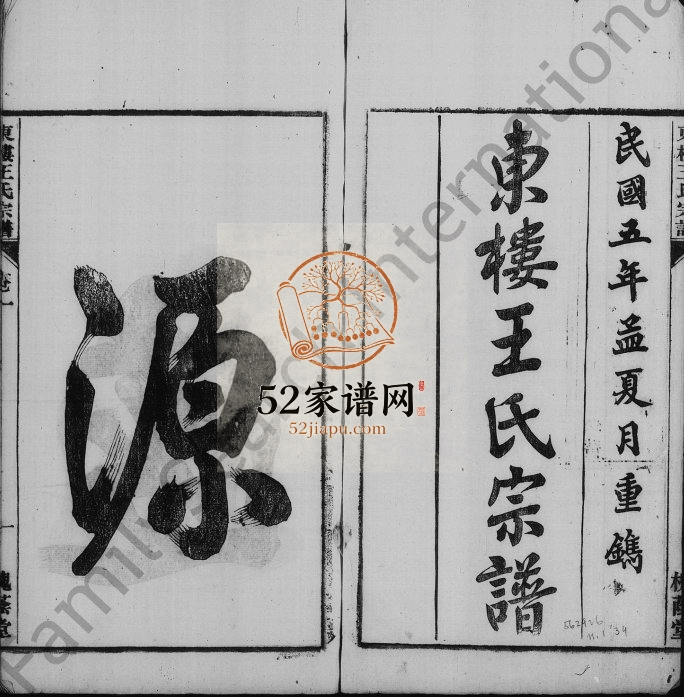 民國五年孟夏月重鐫
東樓王氏宗譜
源
東樓王氏宗譜
卷一
一
槐蔭堂
東樓王氏宗譜
槐蔭堂
52家谱网
52jiapu.com
Family Search International
562926